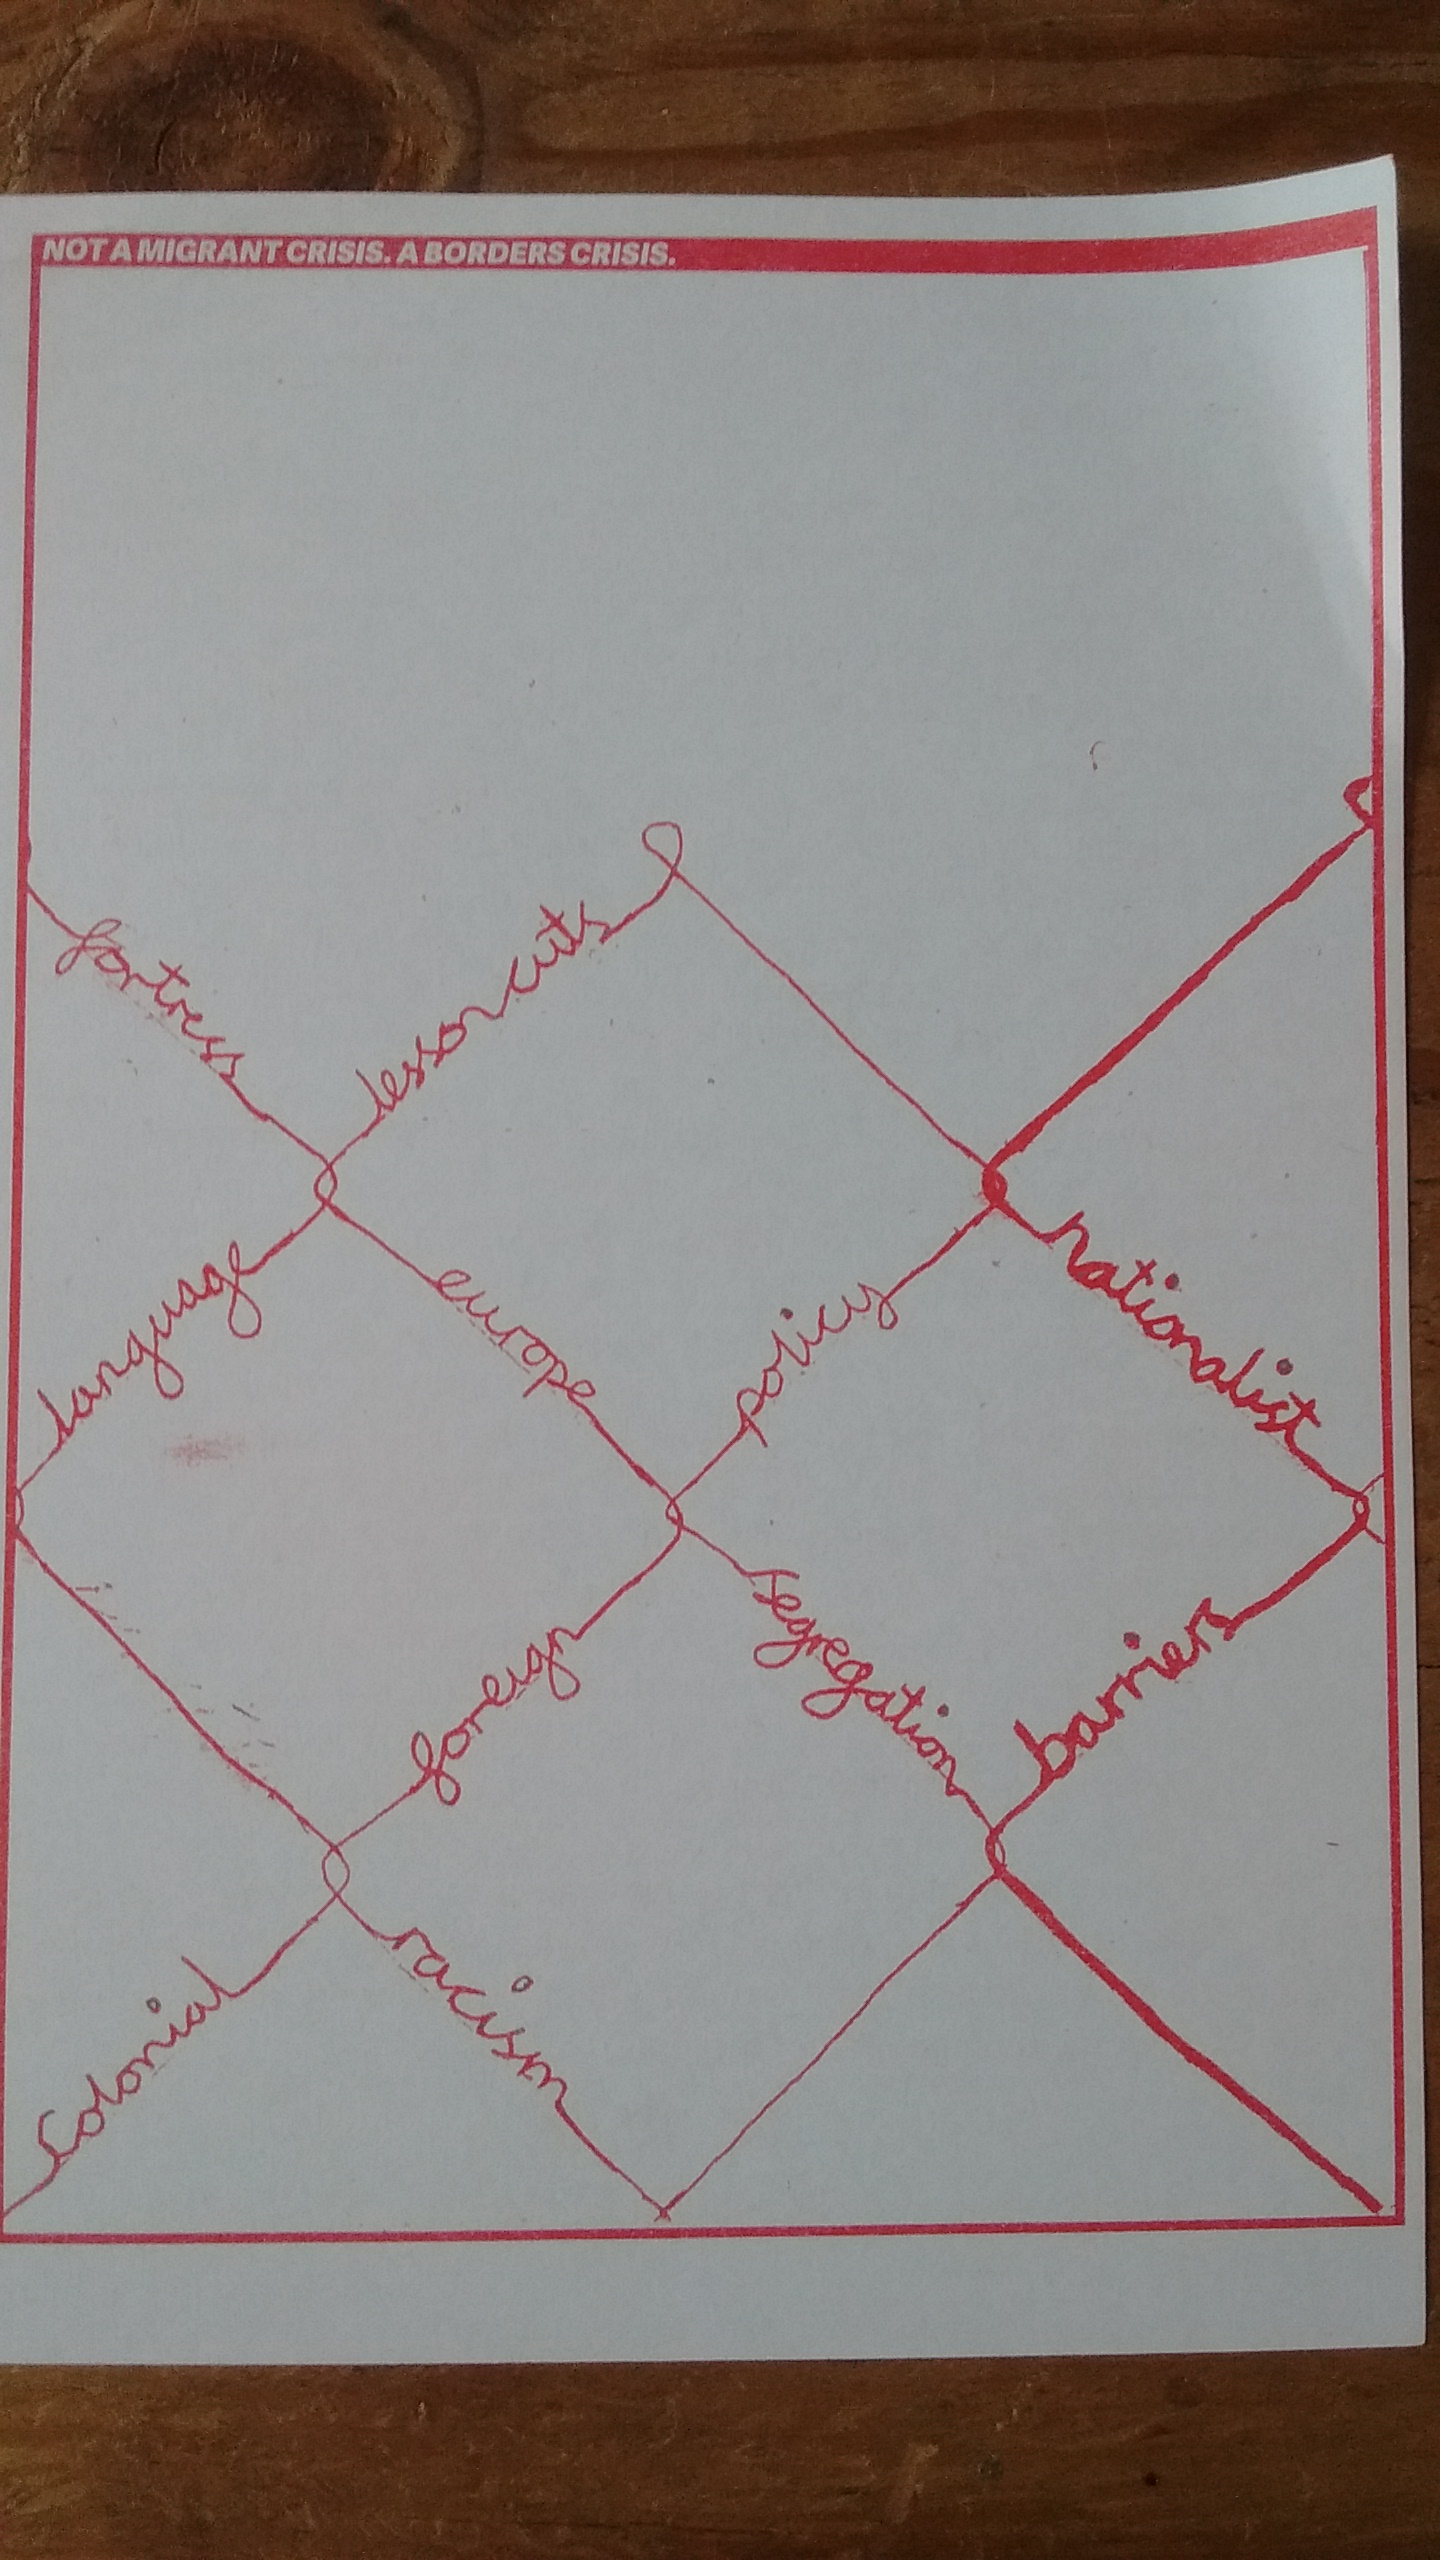 NOT A MIGRANT CRISIS. A BORDERS CRISIS.
fortress
lesson cuts
language
europe
policy
nationalist
foreign
segregation
barriers
Colonial
racism